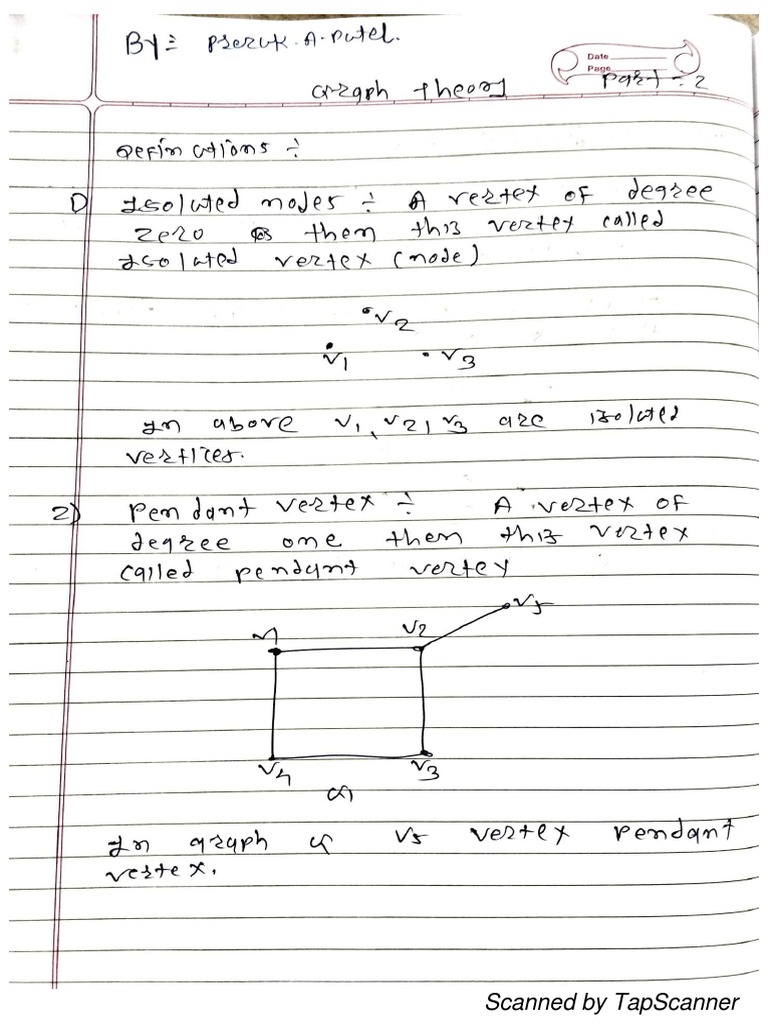 By :- A. Patel.
Date
Page
Graph theory Part :- 2
Definations :-
1) Isolated nodes :- A vertex of degree
zero then this vertex called
Isolated vertex (node)
v2
v1 v3
In above v1, v2, v3 are isolated
vertices.
2) Pendant vertex :- A vertex of
degree one then this vertex
called pendant vertex
v5
v1 v2
v4 v3
G
In graph G v5 vertex pendant
vertex.
Scanned by TapScanner